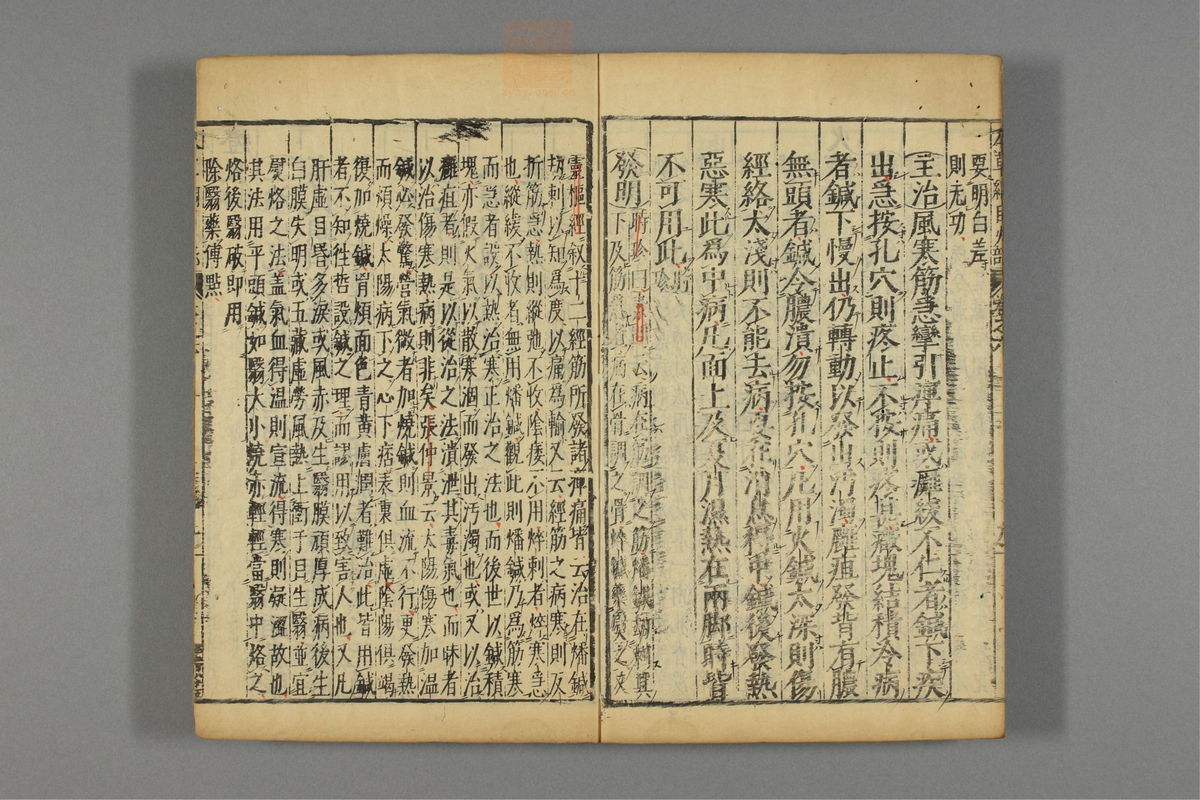 要明白差
則无功
主治風寒筋急攣引痺痛或癱緩不仁者鍼下疾
出急按孔穴則疼止不按則疼甚癥塊結積冷病
者鍼下慢出仍轉動以發出汚濁癰疽發背有膿
無頭者鍼令膿潰勿按孔穴凡用火鍼太深則傷
經絡太淺則不能去病要在消息得中鍼後發熱
惡寒此爲中病凡面上及夏月濕熱在兩脚時皆
不可用此
發明
時珍曰素問云病在筋調之筋燔鍼劫刺其
下及筋急者病在骨調之骨焠鍼藥熨之又
靈樞經叙十二經筋所發諸痺痛皆云治在燔鍼
劫刺以知爲度以痛爲輸又云經筋之病寒則反
折筋急熱則縱弛不收陰痿不用焠刺者焠寒急
也縱緩不收者無用燔鍼觀此則燔鍼乃爲筋寒
而急者設以熱治寒正治之法也而後世以鍼積
塊亦假火氣以散寒涸而發出汚濁也或又以治
癰疽者則是以從治之法潰泄其毒氣也而昧者
以治傷寒熱病則非矣張仲景云太陽傷寒加温
鍼必發驚營氣微者加燒鍼則血流不行更發熱
而煩燥太陽病下之心下痞表裏俱虛陰陽俱竭
復加燒鍼胃煩面色青黃膚潤者難治此皆用鍼
者不知往哲設鍼之理而謬用以致害人也又凡
肝虛目昏多淚或風赤及生翳膜頑厚成病後生
白膜失明或五藏虛勞風熱上衝于目生翳並宜
熨烙之法蓋氣血得温則宣流得寒則凝澀故也
其法用平頭鍼如翳大小燒赤輕輕當翳中烙之
烙後翳破即用
除翳藥傅點